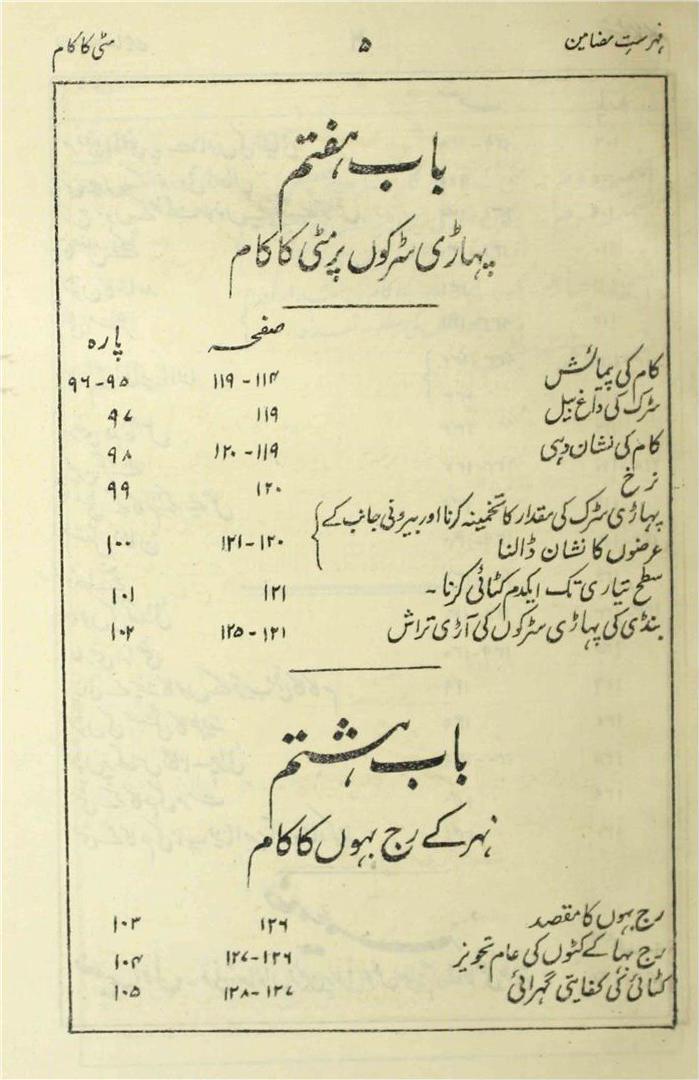 فہرست مضامین ۵ مٹی کا کام
باب ہفتم
پہاڑی سڑکوں پر مٹی کا کام
صفحہ پارہ
کام کی پیمائش ۱۱۴-۱۱۹ ۹۵-۹۶
سڑک کی داغ بیل ۱۱۹ ۹۷
کام کی نشان دہی ۱۱۹-۱۲۰ ۹۸
نرخ ۱۲۰ ۹۹
پہاڑی سڑک کی مقدار کا تخمینہ کرنا اور بیرونی جانب کے
عرضوں کا نشان ڈالنا ۱۲۰-۱۲۱ ۱۰۰
سطح تیاری تک ایکدم کٹائی کرنا - ۱۲۱ ۱۰۱
بنڈی کی پہاڑی سڑکوں کی آڑی تراش ۱۲۱-۱۲۵ ۱۰۲
باب ہشتم
نہر کے رج بہوں کا کام
رج بہوں کا مقصد ۱۲۶ ۱۰۳
رج بہا کے کٹوں کی عام تجویز ۱۲۶-۱۲۷ ۱۰۴
کٹائی کی کفایتی گہرائی ۱۲۷-۱۲۸ ۱۰۵